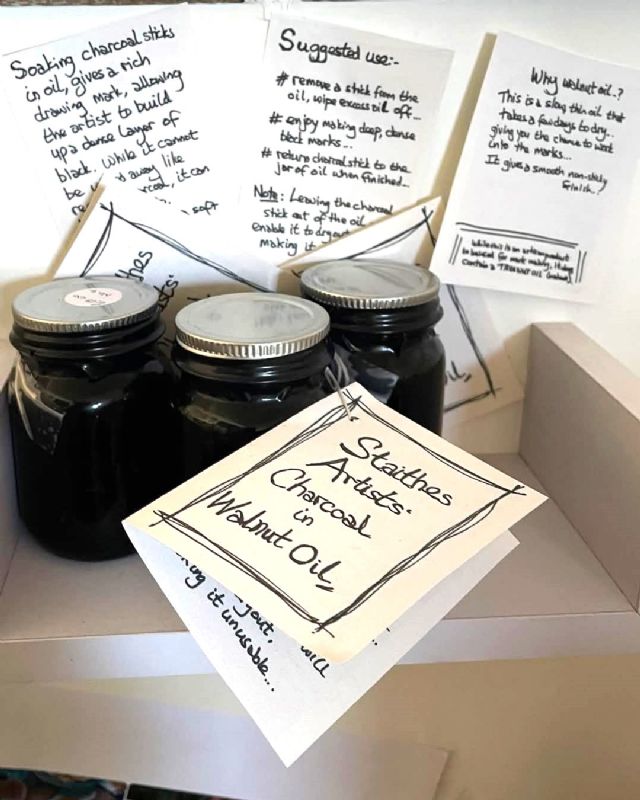 Soaking charcoal sticks
in oil, gives a rich
drawing mark, allowing
the artist to build
up a dense layer of
black. While it cannot
be away like
charcoal, it can
soft
Suggested use:-
# remove a stick from the
oil, wipe excess oil off...
# enjoy making deep, dense
black marks...
# return charcoal stick to the
jar of oil when finished...
Note: Leaving the charcoal
stick out of the oil
enable it to dry out
making it
Why walnut oil..?
This is a slow thin oil that
takes a few days to dry..
giving you the chance to work
into the marks...
It gives a smooth non-sticky
finish..!
While this is an artists product
contains a 'TREE NUT OIL'
Staithes
Artists'
Staithes
Artists'
Charcoal
in
Walnut Oil
out.
will
it unusable...